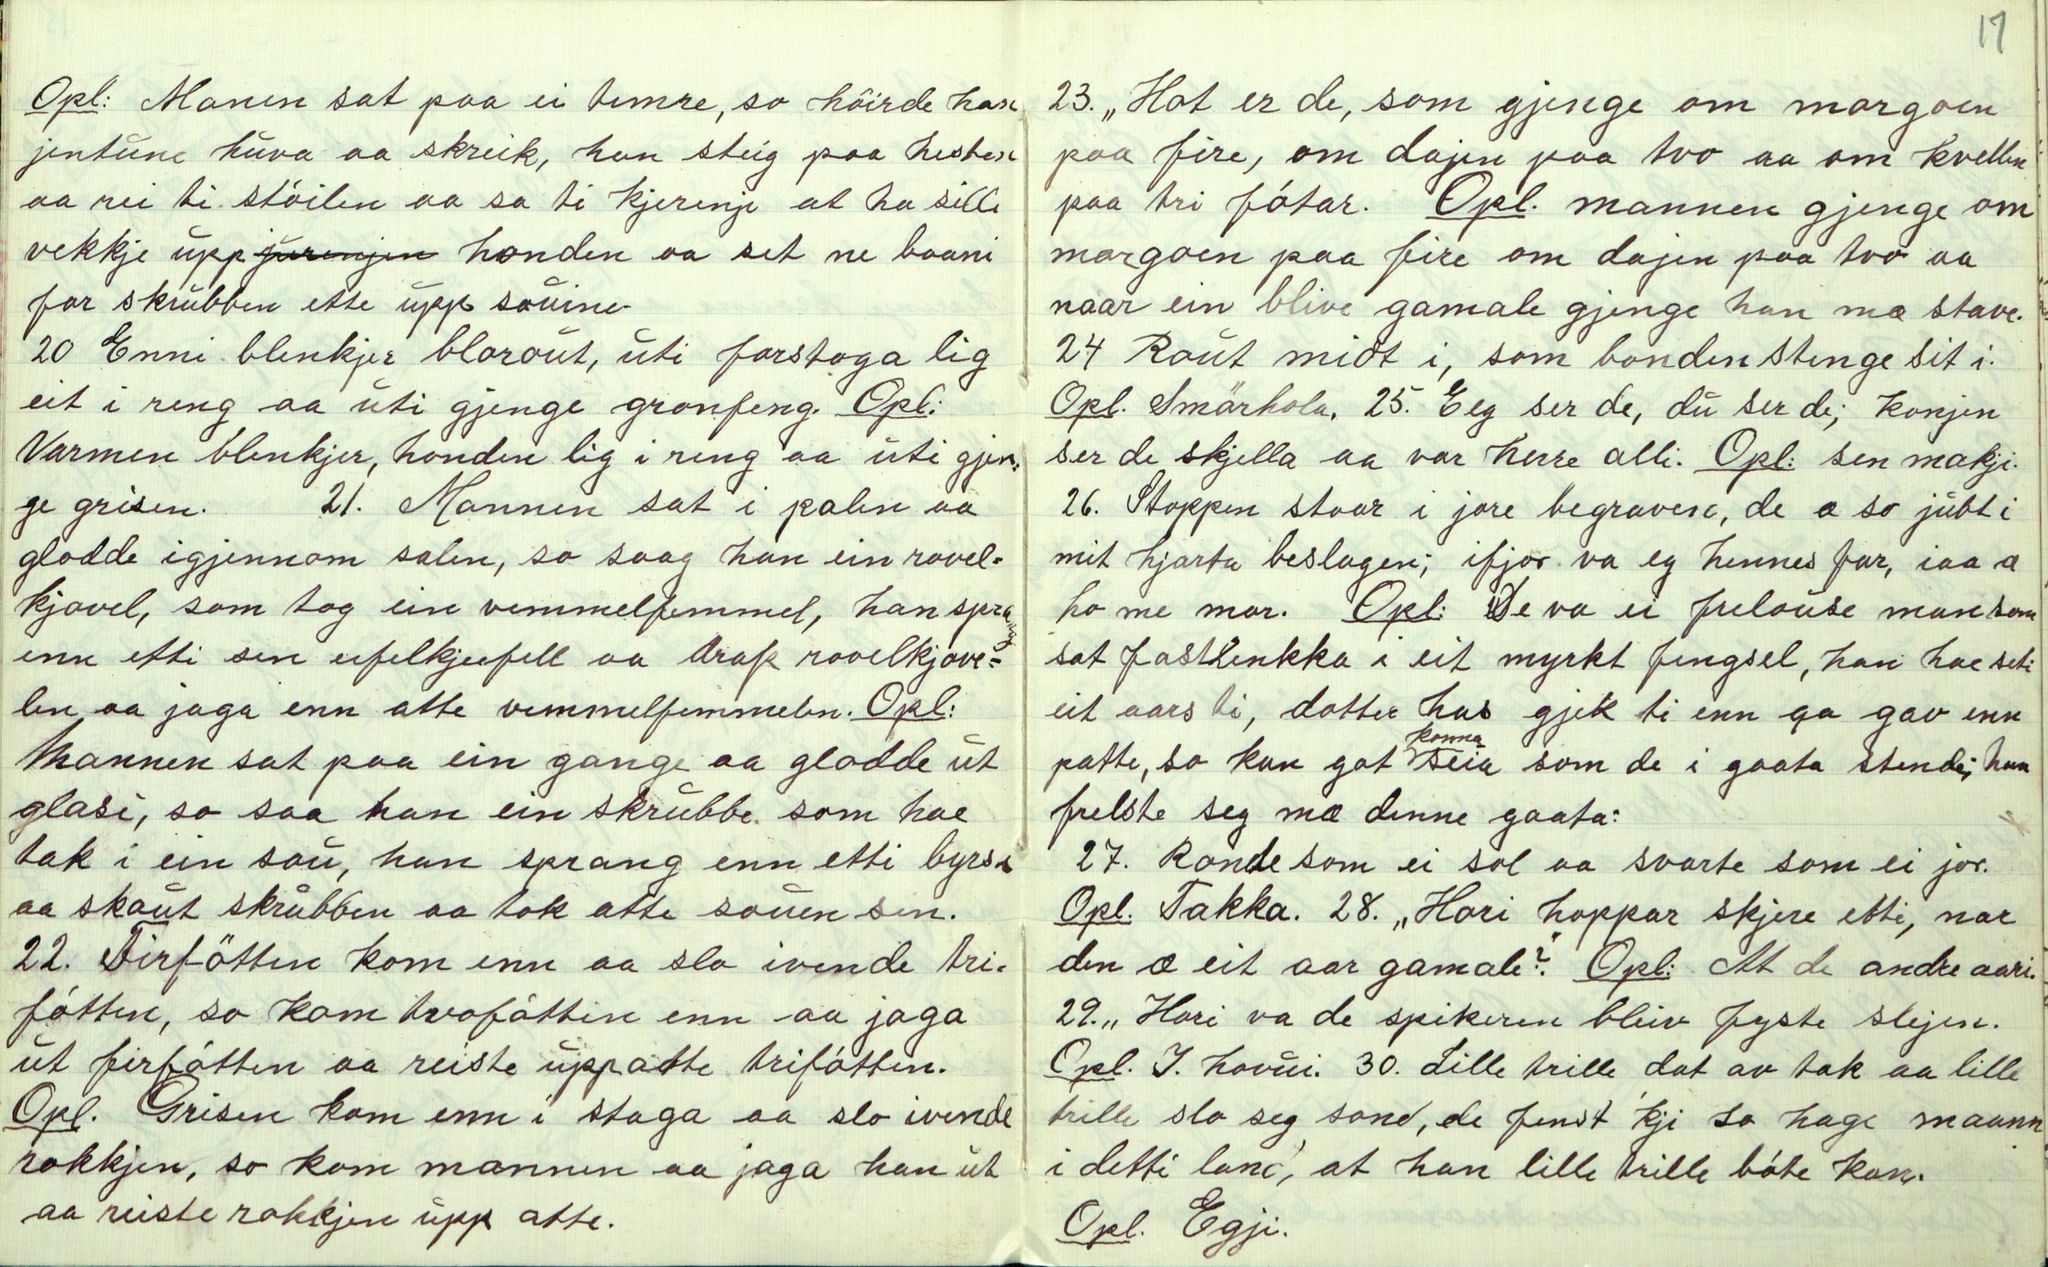 Opl: Manen sat paa ei temre, so höirde han
jentune huva aa skreik, han steig paa hesten
aa rei ti stöilen aa sa ti kjerenje at ho sille
vekkje upp jurenjen honden aa set ne baani
for skrubben ette upp souine
20 Enni blenkjer blorout, uti forstoga lig
eit i reng aa uti gjenge gronfeng. Opl:
Varmen blenkjer, honden lig i reng aa uti gjen-
ge grisen. 21. Mannen sat i palen aa
glodde igjennom salen, so saag han ein rovel-
kjovel, som tog ein vemmelfemmel, han sprang
enn etti sen eifelkjeifell aa drap rovelkjove-
len aa jaga enn atte vemmelfemmelen. Opl:
Mannen sat paa ein gange aa glodde ut
glasi, so saa han ein skrubbe som hae
tak i ein sou, han sprang enn etti byrsa
aa skout skrubben aa tok atte souen sen.
22. Firfötten kom enn aa slo ivende tri-
fótten, so kom tvofóttin enn aa jaga
ut firfótten aa reiste uppatte trifótten.
Opl. Grisen kom enn i stoga aa slo ivende
rokkjen, so kom mannen aa jaga han ut
aa reiste rokkjen upp atte.
17
23. „Hot er de, som gjenge om morgoen
paa fire, om dajen paa tvo aa om kvellen
paa tri fótar. Opl. mannen gjenge om
morgoen paa fire om dajen paa tvo aa
naar ein blive gamale gjenge han mæ stave.
24 Rout midt i, som bonden stenge sit i.
Opl. Smörhola. 25. Eeg ser de, du ser de; konjen
ser de skjella aa vor herre alli. Opl: sen makji.
26. Stoppen staar i jore begraven, de æ so jubt i
mit hjarta beslagen; ifjor va eg hennes far, iaa æ
ho me mor. Opl: De va ei frelouse man som
sat fastlenkka i eit myrkt fengsel, han hae seti
eit aars ti, dotter has gjek ti enn aa gav enn
patte, so kan got konna seia som de i gaata stende; han
frelste seg mæ denne gaata:
27. Ronde som ei sol aa svarte som ei jor.
Opl. Takka. 28. „Hori hoppar skjere etti, nar
den æ eit aar gamale?" Opl: At de andre aari.
29. „Hori va de spikeren bleiv fyste slejen.
Opl. I. hovui. 30. Lille trille dat av tak aa lille
trille slo seg sond, de fenst 'kji so hage maann
i detti land, at han lille trille bóte kan.
Opl. Egji.